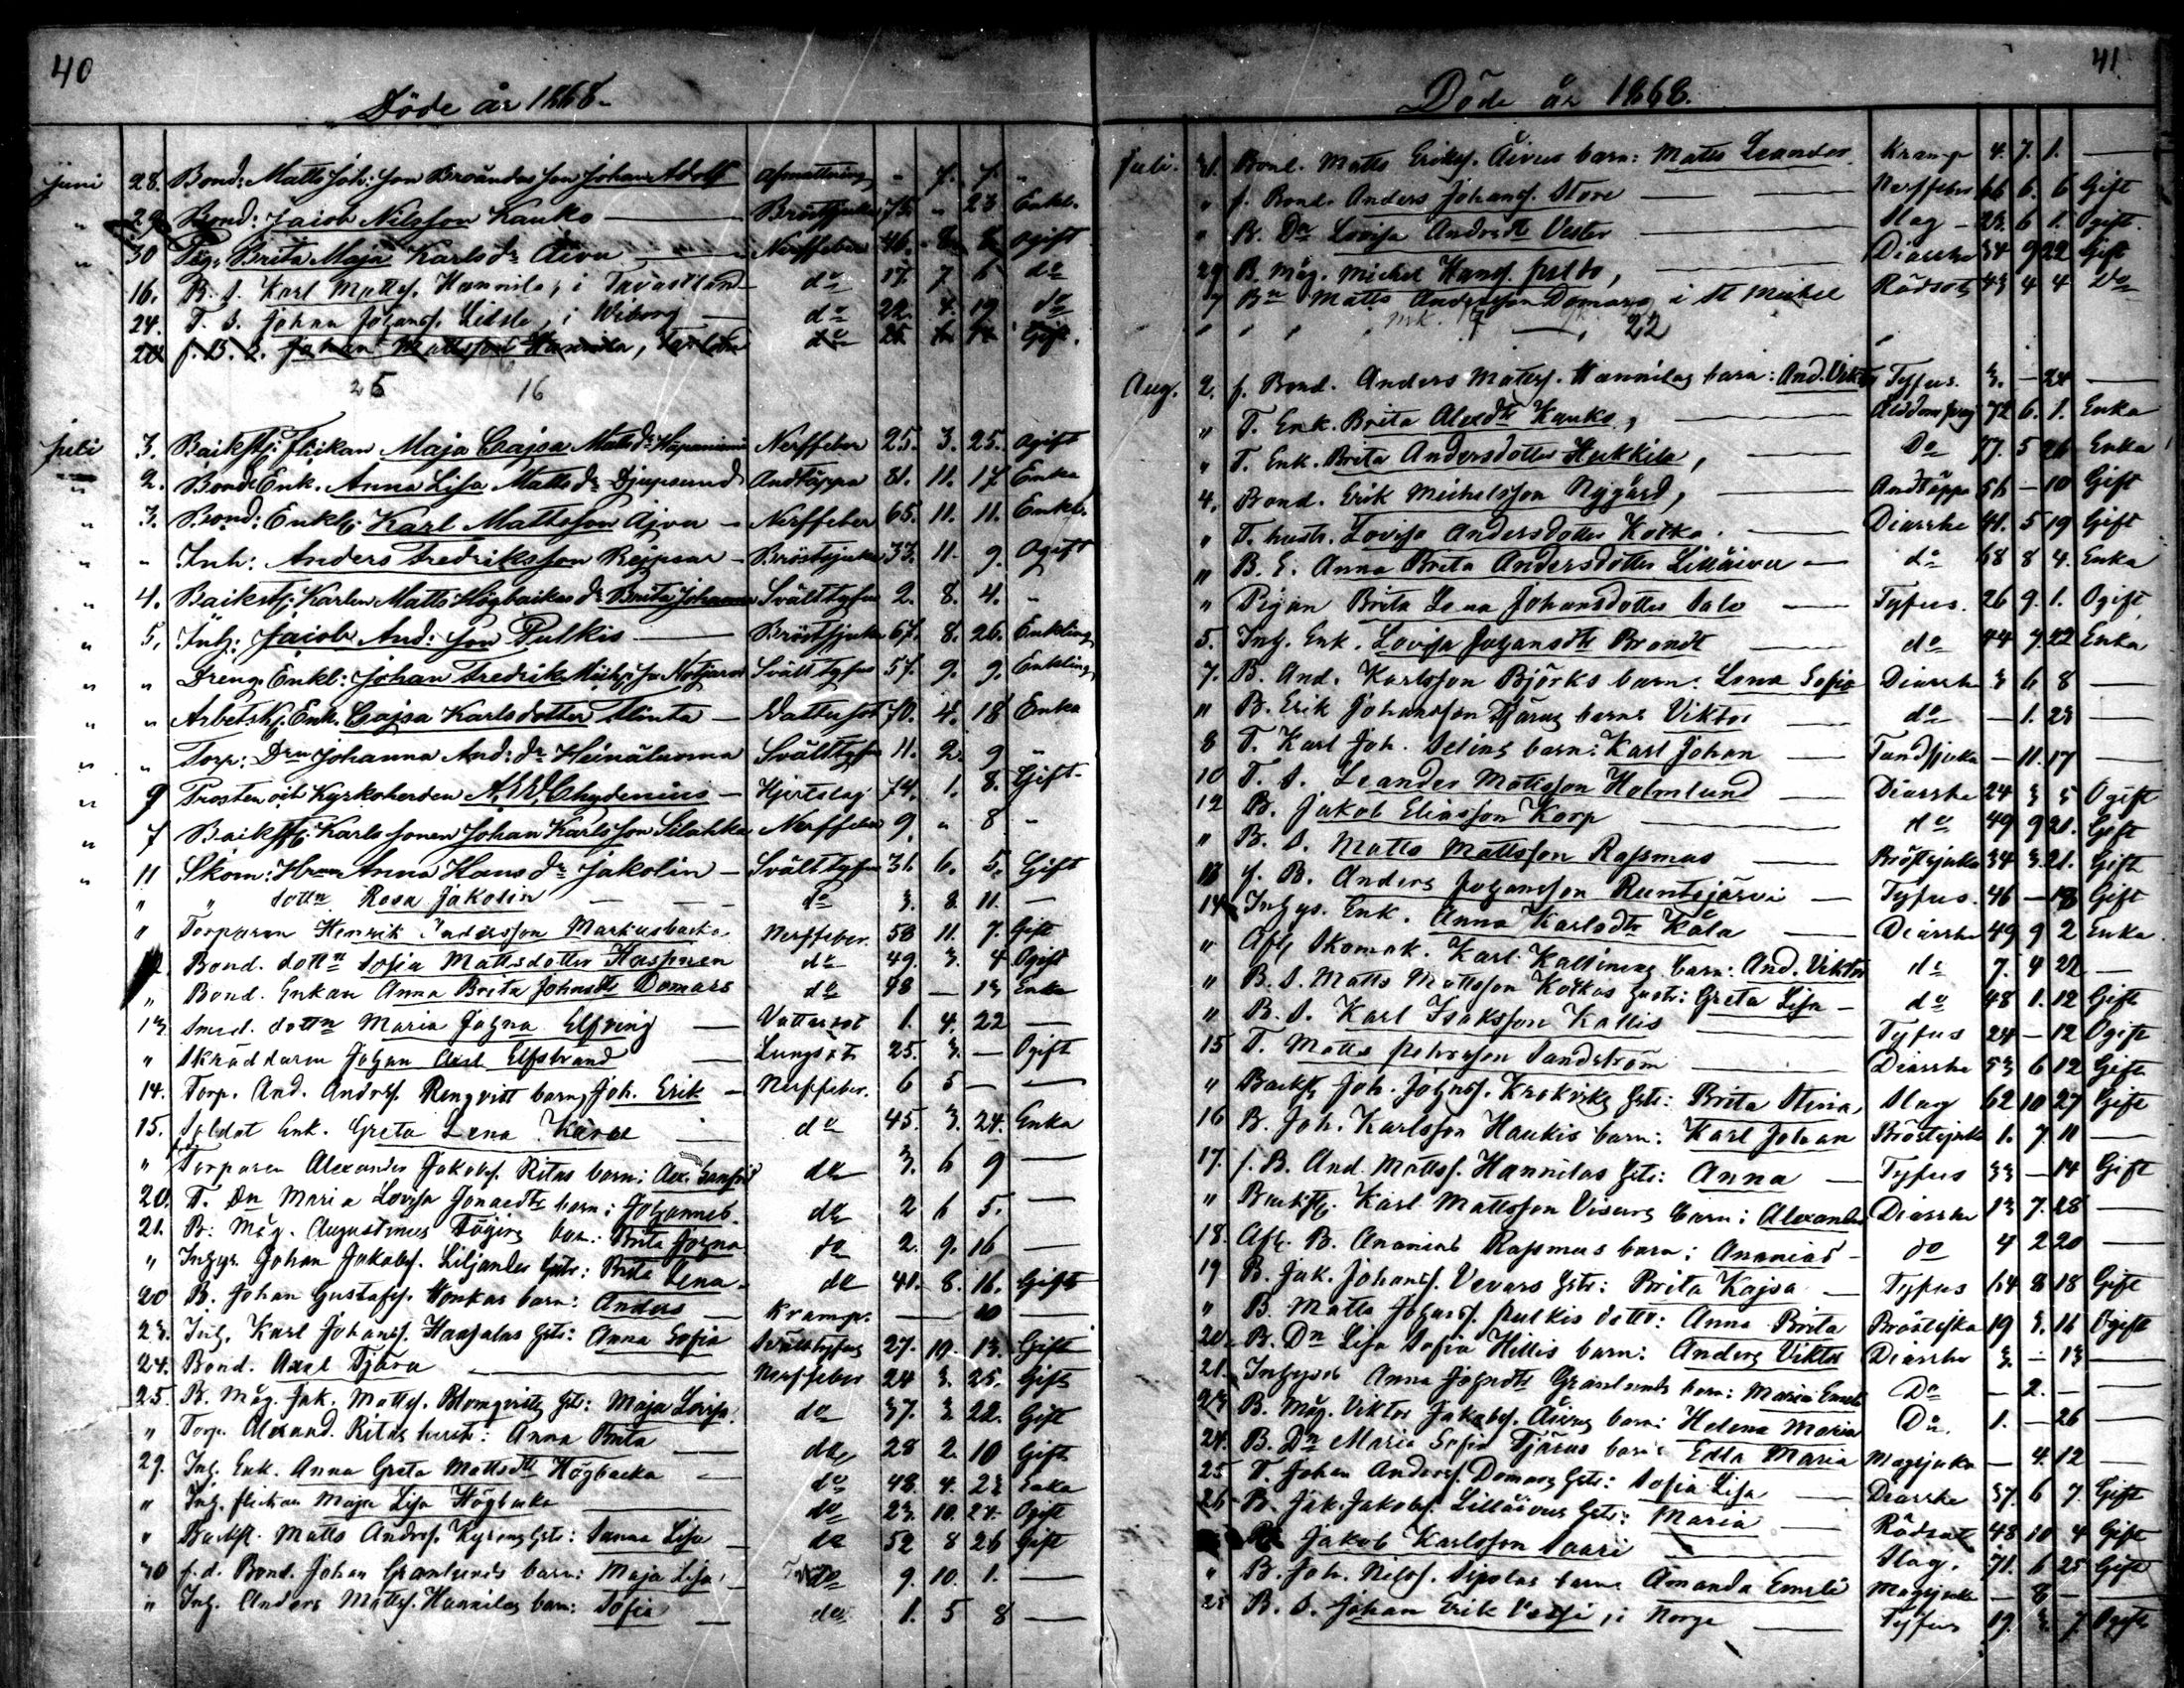 40
Döde år 1868.
Juni 28. Bond: Matts Joh: son Broändas son Johan Adolf Afmattning - 7. 7. "
" 29 Bond: Jacob Nilsson Kauko Bröstsjuka 75. " 23 Enkl.
" 30 Pig. Brita Maja Karls dr Aiva Nerffeber 46. Ogift
16. B. S. Karl Matts. Hannila, i Tavastland do 17. 7 6 do
24. T. S. Johan Johans. Lillsle, i Wiborg do 22. 4. 19 do
20. f. B. S. Johan Mattsson Hannila, do Gift.
25 16
Juli 3. Backstf: flickan Maja Cajsa Matts dr Nerffeber 25. 3. 25. Ogift
" 2. Bond Enk. Anna Lisa Matts dr Djupsund Andtäppa 81. 11. 17 Enka
" 3. Bond: Enkl: Karl Mattsson Ajva Nerffeber 65. 11. 11. Enkl.
" " Inh: Anders Fredriksson Reipsar Bröstsjuka 33. 11. 9. Ogift
" 4. Backstf: Karlen Matts Högbackas dr Brita Johanna Svälttyfus 2. 8. 4. "
" 5. Inh: Jacob And: son Pulkis Bröstsjuka 67. 8. 26. Enkling
" " Dreng. Enkl: Johan Fredrik Svälttyfus 57. 9. 9. Enkling
" " Arbetsk. Enk. Cajsa Karlsdotter Slinta Vattusot 70. 4. 18 Enka
" " Torp: Drn Johanna And: dr Heinäluoma Svälttyfus 11. 2. 9 "
" 9 Prosten och Kyrkoherden Chydenius Hjertslag 74. 1. 8. Gift.
" 7 Backstf: Karls sonen Johan Karlsson Nerffeber 9. " 8 "
" 11 Skom: Hrun Anna Hans dr Jakolin Svälttyfus 31. 6. 5. Gift
" " dottn Rosa Jakolin do 3. 8. 11. —
" Torparen Henrik Andersson Markusbacka Nerffeber. 58 11. 7. Gift
Bond. dottn Sofia Mattsdotter Kaspinen do 49. 3. 4 Ogift
" Bond. Enkan Anna Brita Johnsdtr Domars do 48 — 13 Enka
13. Smed. dottn Maria Johna Elfving Vattusot 1. 4. 22 —
" Skräddaren Johan Axel Elfstrand Lungsot 25. 3. — Ogift
14. Torp. And. Anders. Renqvist barn, Joh. Erik Nerffeber. 6 5 — —
15. Soldat Enk. Greta Lena Karae do 45. 3. 24. Enka
" Torparen Alexander Jakobs. Ritas barn: Alex. do 3. 6 9 —
20. T. Dn Maria Lovisa Jonaedtr barn: Johannes. do 2 6 5. —
21. B. Måg. Augustinus barn: Brita Johna do 2. 9. 16 —
" Inhys. Johan Jakobs. Liljander hstr: Brita Lena do 41. 8. 16. Gift
20 B. Johan Gustafss. Honkas barn: Anders Kramp. — — 10 —
23. Inh. Karl Johans. Haapalas hstr: Anna Sofia Svälttyfus 27. 10. 13. Gift
24. Bond. Axel Tjära Nerffeber 24 3. 25. Gift
25. B. Måg. Jak. Matts. Blomqvists hst: Maja Lovisa. do 37. 3. 22. Gift
" Torp. Alexand. Ritas hustr: Anna Brita do 28 2. 10 Gift
29. Inh. Enk. Anna Greta Mattsdtr Högbacka do 48. 4. 23 Enka
" Inh. flickan Maja Lisa Högbacka do 23. 10. 24. Ogift
" Backst. Matts Anders. hstr: Sanna Lisa do 52 8 26 Gift
30 f. d. Bond. Johan Granlunds barn: Maja Lisa do 9. 10. 1. —
" Inh. Anders Matts. Hannilas barn: Sofia do 1. 5 8 —
41
Döde år 1868.
Juli. 31. Bond. Matts Erikss. Äivus barn: Matts Leander. Kramp 4. 7. 1. —
" f. Bond. Anders Johans. Store Nerffeber 66 6. 6 Gift
" B. Dn Lovisa Andersdtr Vester Slag 23. 6 1. Ogift.
29 B. Måg. Michel Hans. Diarrhe 34 9 22 Gift
7 Bn Matts Andersson Domars, i St Michel Rödsot 43 4 4 Do
mk. 22
Aug. 2. f. Bond. Anders Matts. Hannilas barn: And. Viktor Tyfus. 3. — 24 —
" T. Enk. Brita Alexdtr Kauko, 72 6. 1. Enka
" T. Enk. Brita Andersdotter Hukkila, Do 77. 5 26 Enka
4. Bond. Erik Michelsson Nygård, Andtäppa 56 — 10 Gift
" T. hustr. Lovisa Andersdotter Kotka Diarrhe 41. 5 19 Gift
" B. E. Anna Brita Andersdotter Lilläivu do 68 8 4. Enka
" Pigan Brita Lena Johansdotter Salo Tyfus. 26 9. 1. Ogift
5. Inh. Enk. Lovisa Johansdtr Brandt do 44 7. 22 Enka
7. B. And. Karlsson Björks barn: Lena Sofia Diarrhe 3 6 8 —
" B. Erik Johansson Tjäras barn: Viktor do — 1. 23 —
8 T. Karl Joh. Selins barn: Karl Johan Tandsjuka — 11. 17 —
10 T. S. Leander Mattsson Holmlund Diarrhe 24 3 5 Ogift
12 B. Jakob Eliasson Korp do 49 9 21. Gift
" B. S. Matts Mattsson Rasmus Bröstsjuka 34 3. 21. Gift
13 f. B. Anders Johansson Runtujärvi Tyfus. 46 — 18 Gift
14 Inhys. Enk. Anna Karlsdtr Kåla Diarrhe 49 9 2 Enka
" Afl. Skomak. Karl Kallinens barn: And. Viktor do 7. 4 22 —
" B. S. Matts Mattsson Kotkas hustr: Greta Lisa do 48 1. 12 Gift
" B. S. Karl Isaksson Kallis Tyfus 24 — 12 Ogift
15 T. Matts Petersson Sandström Diarrhe 53 6 12 Gift
" Backst. Joh. Johns. Krokviks hstr: Brita Stina, Slag 62 10 27 Gift
16 B. Joh. Karlsson Haukis barn: Karl Johan Bröstsjuka 1. 7 11 —
17. f. B. And. Matts. Hannilas hstr: Anna Tyfus 33 — 14 Gift
" Backstf. Karl Mattsson barn: Alexander Diarrhe 13 7. 28 —
18. Afl. B. Ananias Rasmus barn: Ananias do 4 2 20 —
19 B. Jak. Johans. Vevars hstr: Brita Kajsa Tyfus 64 8 18 Gift
" B. Matts Johans. Pulkis dottr: Anna Brita Bröstsjka 19 3. 16 Ogift
20. B. Dn Lisa Sofia Hillis barn: Anders Viktor Diarrhe 3. — 13 —
21. Inhyses Anna Johnsdtr Granlunds barn: Maria Do — 2. — —
23 B. Måg. Viktor Jakobs. Äivus barn: Helena Maria Do. 1. — 26 —
24. B. Dn Maria Sofia Tjäras barn: Edla Maria Magsjuka — 4. 12 —
25 T. Johan Anders. Domars hstr: Sofia Lisa Diarrhe 37 6 7. Gift
26 B. Jak. Jakobs. Lilläivus hstr: Maria Rödsot 48 10 4 Gift
Jakob Karlsson Saari Slag. 71. 6 25 Gift
" B. Joh. Nilss. Sipolas barn Amanda Emeli Magsjuka — 8 — —
28 B. S. Johan Erik i Norge Tyfus 19. 3. 7. Ogift